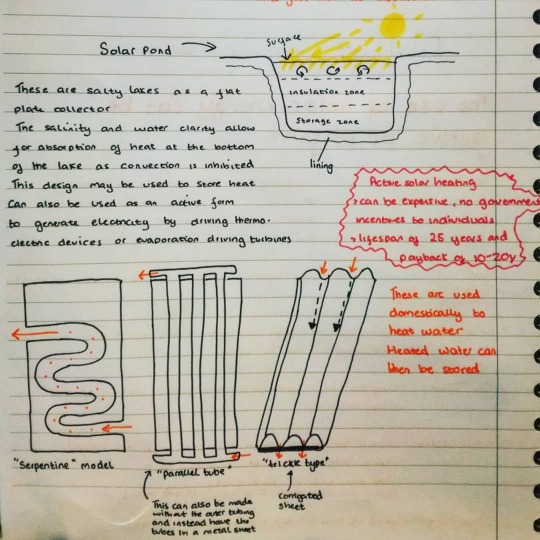 Solar Pond
Surface
insulation zone
storage zone
lining
These are salty lakes as a flat
plate collector
The salinity and water clarity allow
for absorption of heat at the bottom
of the lake as convection is inhibited
This design may be used to store heat
Can also be used as an active form
to generate electricity by driving thermo-
electric devices or evaporation driving turbines
Active solar heating
can be expensive, no government
incentives to individuals
lifespan of 25 years and
payback of 10-20y
These are used
domestically to
heat water
Heated water can
then be stored
"Serpentine" model
"parallel tube"
"trickle type"
This can also be made
without the outer tubing
and instead have the
tubes in a metal sheet
corrigated
sheet